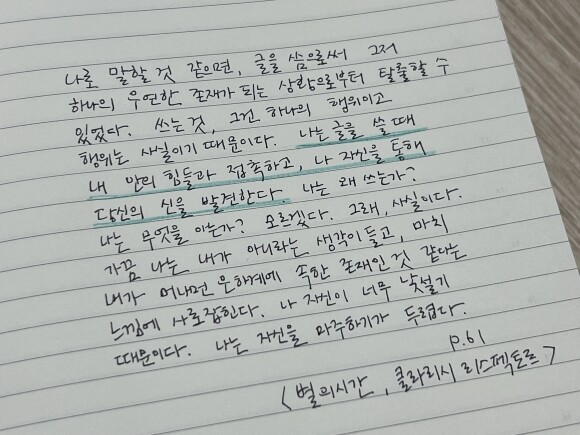 나로 말할 것 같으면, 글을 씀으로써 그저
하나의 우연한 존재가 되는 상황으로부터 탈출할 수
있었다. 쓰는 것, 그건 하나의 행위이고
행위는 사실이기 때문이다. 나는 글을 쓸 때
내 안의 힘들과 접촉하고, 나 자신을 통해
당신의 신을 발견한다. 나는 왜 쓰는가?
나는 무엇을 아는가? 모르겠다. 그래, 사실이다.
가끔 나는 내가 아니라는 생각이 들고, 마치
내가 머나먼 은하계에 속한 존재인 것 같다는
느낌에 사로잡힌다. 나 자신이 너무 낯설기
때문이다. 나는 자신을 마주하기가 두렵다.
p.61
<별의시간, 클라리시 리스펙토르>